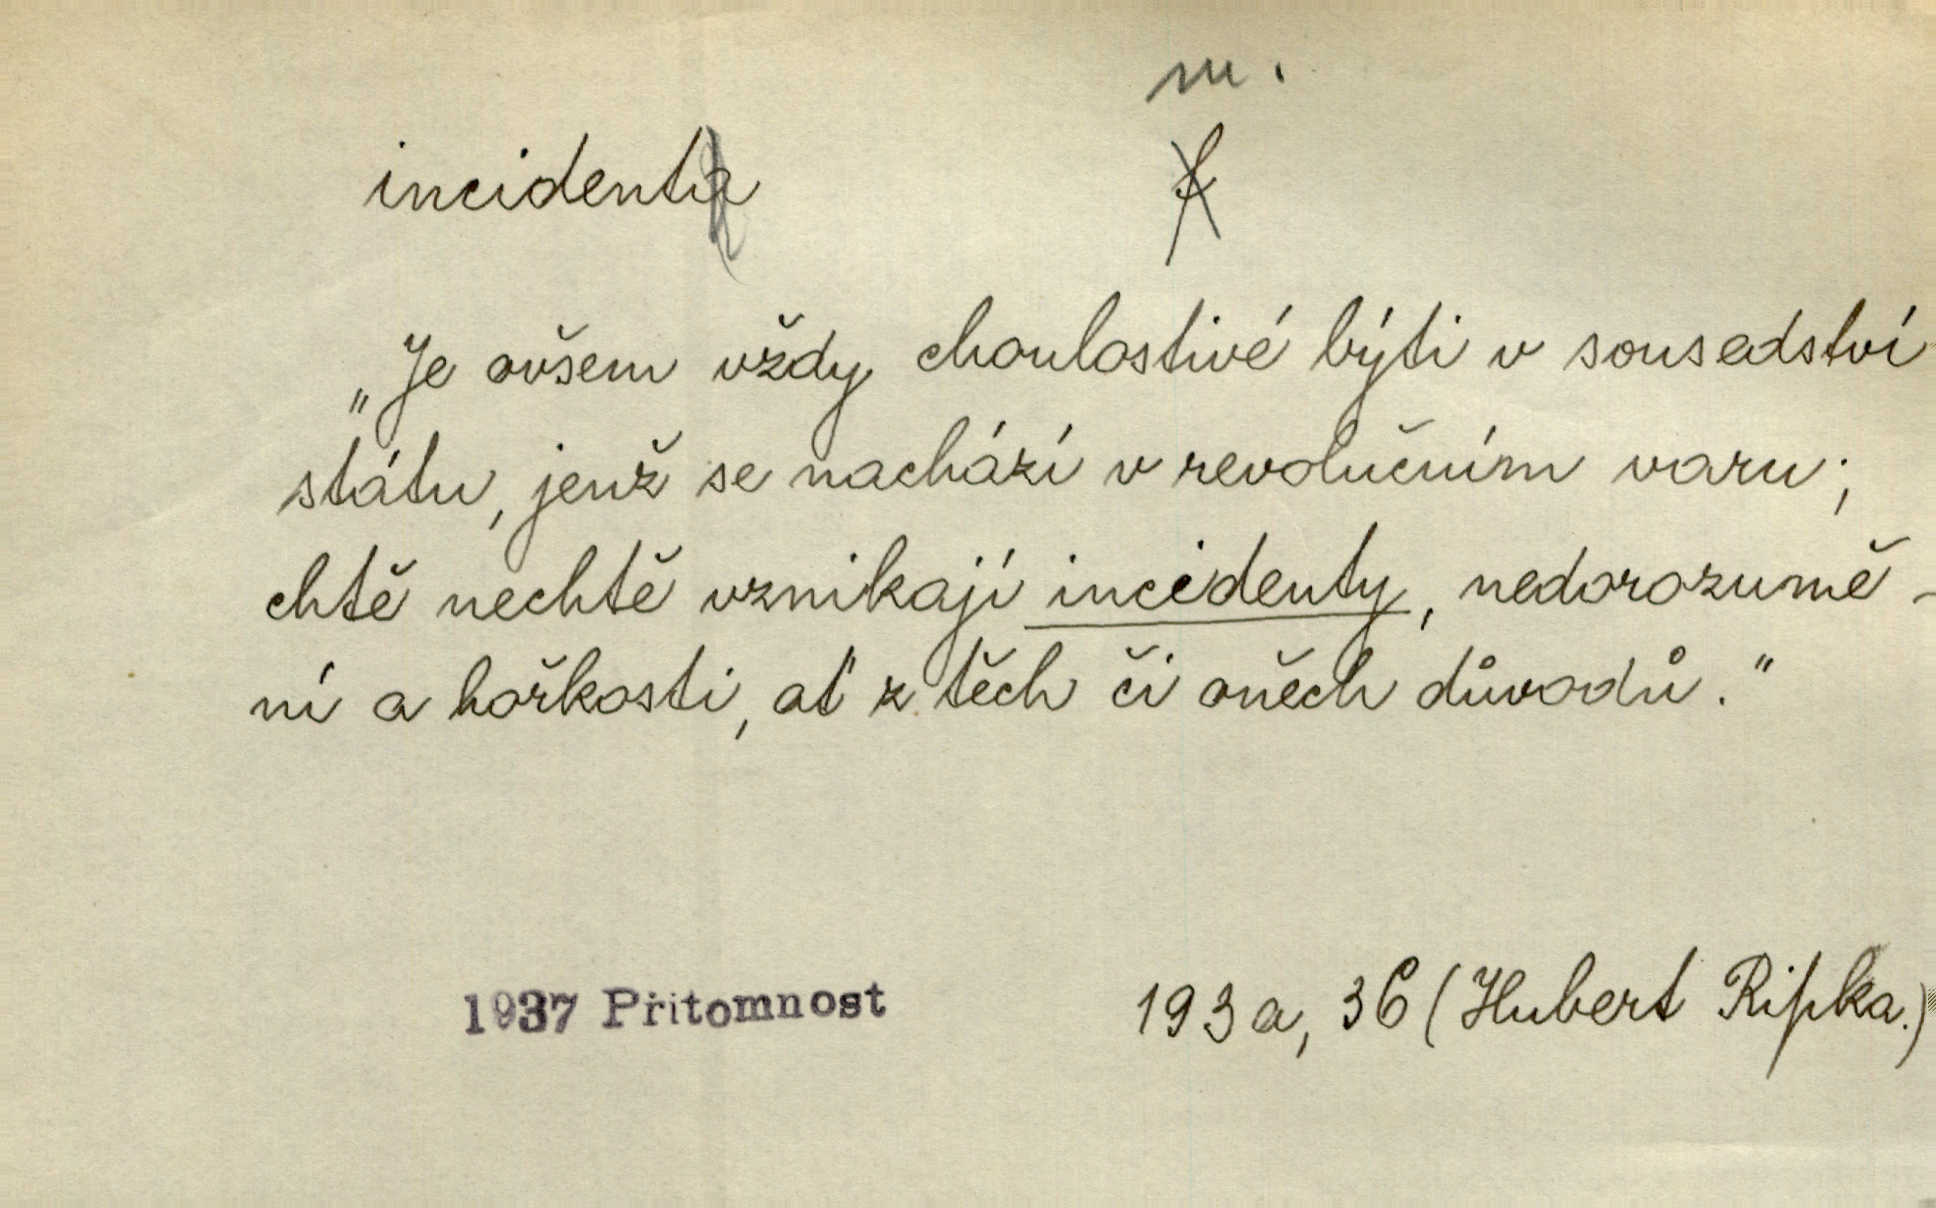 m.
incident f
„Je ovšem vždy choulostivé býti v sousedství
státu, jenž se nachází v revolučním varu;
chtě nechtě vznikají incidenty, nedorozumě-
ní a hořkosti, ať z těch či oněch důvodů."
1937 Přítomnost 193a, 36 (Hubert Ripka.)